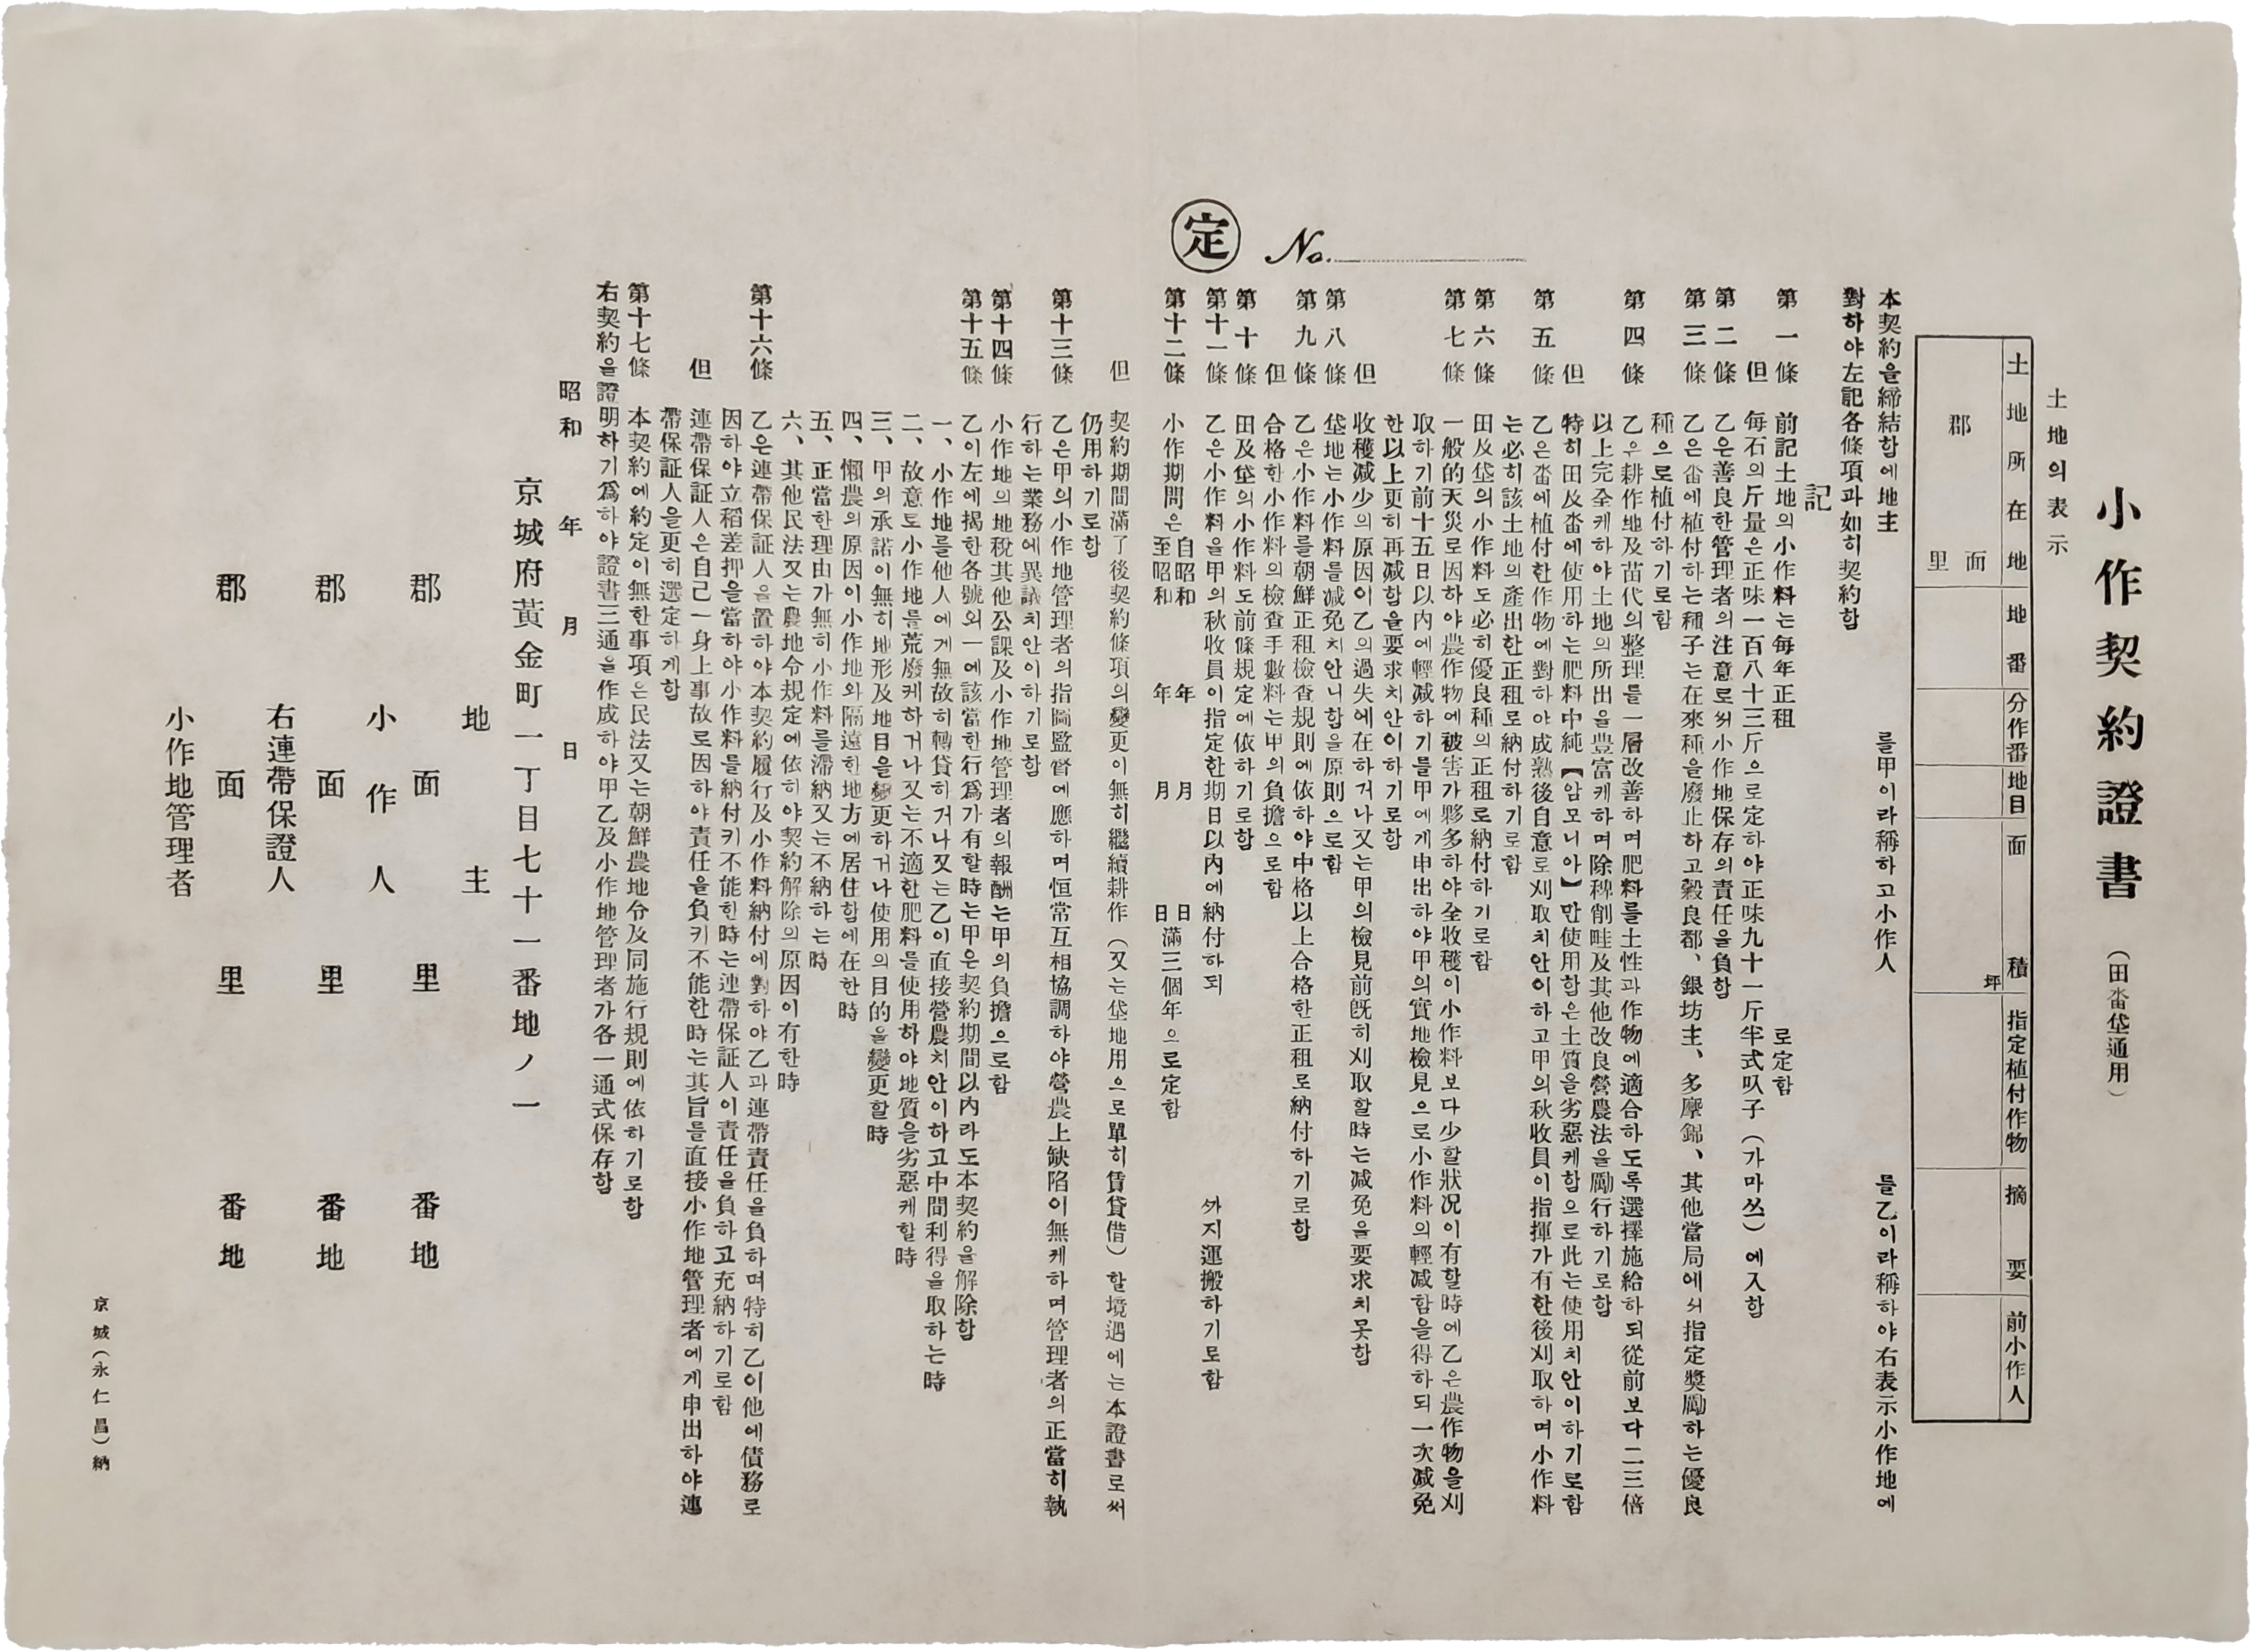 小作契約證書（田畓垈通用）
土地의表示
土地所在地 地番 分作番 地目 面積 指定植付作物 摘要 前小作人
郡 面 里 坪
本契約을締結함에地主 를甲이라稱하고小作人 를乙이라稱하야右表示小作地에
對하야左記各條項과如히契約함
記
第一條 前記土地의小作料는每年正租 로定함
但 每石의斤量은正味一百八十三斤으로定하야正味九十一斤半式叺子（가마쓰）에入함
第二條 乙은善良한管理者의注意로써小作地保存의責任을負함
第三條 乙은畓에植付하는種子는在來種을廢止하고穀良都、銀坊主、多摩錦、其他當局에서指定奬勵하는優良
種으로植付하기로함
第四條 乙은耕作地及苗代의整理를一層改善하며肥料를土性과作物에適合하도록選擇施給하되從前보다二三倍
以上完全케하야土地의所出을豊富케하며除稗削畦及其他改良營農法을勵行하기로함
但 特히田及畓에使用하는肥料中純【암모니아】만使用함은土質을劣惡케함으로此는使用치안이하기로함
第五條 乙은畓에植付한作物에對하야成熟後自意로刈取치안이하고甲의秋收員이指揮가有한後刈取하며小作料
는必히該土地의產出한正租로納付하기로함
第六條 田及垈의小作料도必히優良種의正租로納付하기로함
第七條 一般的天災로因하야農作物에被害가夥多하야全收穫이小作料보다少할狀况이有할時에乙은農作物을刈
取하기前十五日以內에輕减하기를甲에게申出하야甲의實地檢見으로小作料의輕减함을得하되一次减免
한以上更히再减함을要求치안이하기로함
但 收穫减少의原因이乙의過失에在하거나又는甲의檢見前旣히刈取할時는减免을要求치못함
第八條 垈地는小作料를减免치안니함을原則으로함
第九條 乙은小作料를朝鮮正租檢查規則에依하야中格以上合格한正租로納付하기로함
但 合格한小作料의檢查手數料는甲의負擔으로함
第十條 田及垈의小作料도前條規定에依하기로함
第十一條 乙은小作料을甲의秋收員이指定한期日以內에納付하되 外지運搬하기로함
第十二條 小作期間은自昭和 年 月 日
至昭和 年 月 日滿三個年으로定함
但 契約期間滿了後契約條項의變更이無히繼續耕作（又는垈地用으로單히賃貸借）할境遇에는本證書로써
仍用하기로함
第十三條 乙은甲의小作地管理者의指圖監督에應하며恒常互相協調하야營農上缺陷이無케하며管理者의正當히執
行하는業務에異議치안이하기로함
第十四條 小作地의地稅其他公課及小作地管理者의報酬는甲의負擔으로함
第十五條 乙이左에揭한各號의一에該當한行爲가有할時는甲은契約期間以內라도本契約을解除함
一、小作地를他人에게無故히轉貸하거나又는乙이直接營農치안이하고中間利得을取하는時
二、故意로小作地를荒廢케하거나又는不適한肥料를使用하야地質을劣惡케할時
三、甲의承諾이無히地形及地目을變更하거나使用의目的을變更할時
四、懶農의原因이小作地와隔遠한地方에居住함에在한時
五、正當한理由가無히小作料를滯納又는不納하는時
六、其他民法又는農地令規定에依하야契約解除의原因이有한時
第十六條 乙은連帶保証人을置하야本契約履行及小作料納付에對하야乙과連帶責任을負하며特히乙이他에債務로
因하야立稻差押을當하야小作料를納付키不能한時는連帶保証人이責任을負하고充納하기로함
但 連帶保証人은自己一身上事故로因하야責任을負키不能한時는其旨를直接小作地管理者에게申出하야連
帶保証人을更히選定하게함
第十七條 本契約에約定이無한事項은民法又는朝鮮農地令及同施行規則에依하기로함
右契約을證明하기爲하야證書三通을作成하야甲乙及小作地管理者가各一通式保存함
昭和 年 月 日
京城府黃金町一丁目七十一番地ノ一
地主
郡 面 里 番地
小作人
郡 面 里 番地
右連帶保證人
郡 面 里 番地
小作地管理者
京城（永仁昌）納
定 No.